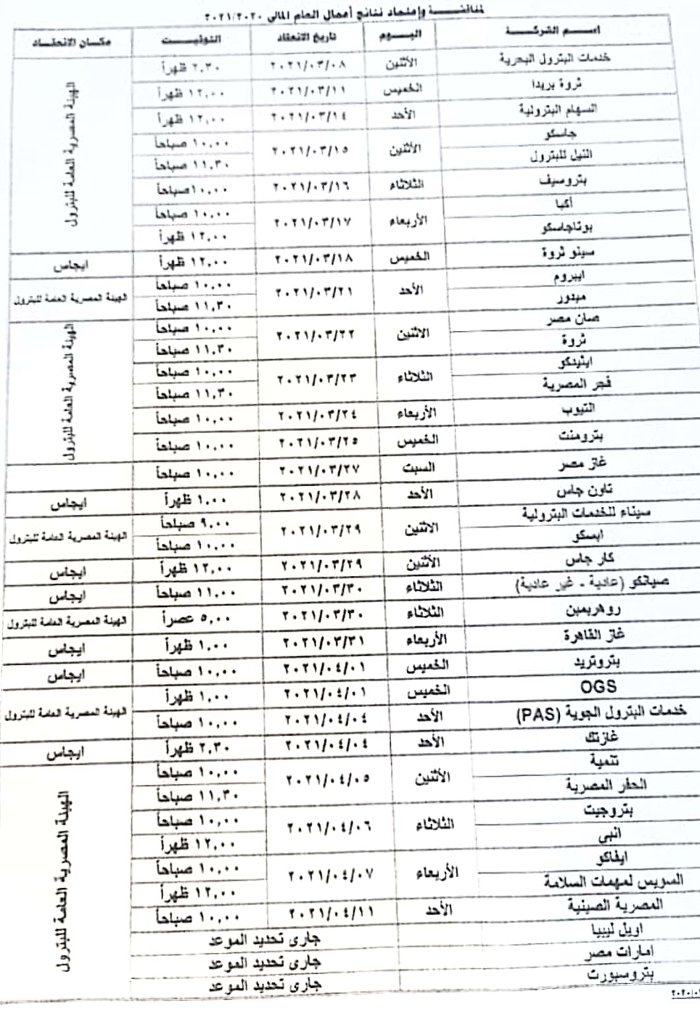 لمناقشة وإعتماد نتائج أعمال العام المالى ٢٠٢١/٢٠٢٠
اسم الشركة اليوم تاريخ الانعقاد التوقيت مكان الانعقاد
خدمات البترول البحرية الأثنين ٢٠٢١/٠٣/٠٨ ٢,٣٠ ظهراً
الهيئة المصرية العامة للبترول
ثروة بريدا الخميس ٢٠٢١/٠٣/١١ ١٢,٠٠ ظهراً
السهام البترولية الأحد ٢٠٢١/٠٣/١٤ ١٢,٠٠ ظهراً
جاسكو الأثنين ٢٠٢١/٠٣/١٥ ١٠,٠٠ صباحاً
النيل للبترول ١١,٣٠ صباحاً
بتروسيف الثلاثاء ٢٠٢١/٠٣/١٦ ١٠,٠٠صباحاً
أكبا الأربعاء ٢٠٢١/٠٣/١٧ ١٠,٠٠ صباحاً
بوتاجاسكو ١٢,٠٠ ظهراً
سينو ثروة الخميس ٢٠٢١/٠٣/١٨ ١٢,٠٠ ظهراً ايجاس
ايبروم الأحد ٢٠٢١/٠٣/٢١ ١٠,٠٠ صباحاً الهيئة المصرية العامة للبترول
ميدور ١١,٣٠ صباحاً
صان مصر الاثنين ٢٠٢١/٠٣/٢٢ ١٠,٠٠ صباحاً
الهيئة المصرية العامة للبترول
ثروة ١١,٣٠ صباحاً
ايثيدكو الثلاثاء ٢٠٢١/٠٣/٢٣ ١٠,٠٠ صباحاً
فجر المصرية ١١,٣٠ صباحاً
التيوب الأربعاء ٢٠٢١/٠٣/٢٤ ١٠,٠٠ صباحاً
بترومنت الخميس ٢٠٢١/٠٣/٢٥ ١٠,٠٠ صباحاً
غاز مصر السبت ٢٠٢١/٠٣/٢٧ ١٠,٠٠ صباحاً
تاون جاس الأحد ٢٠٢١/٠٣/٢٨ ١,٠٠ ظهراً ايجاس
سيناء للخدمات البترولية الاثنين ٢٠٢١/٠٣/٢٩ ٩,٠٠ صباحاً الهيئة المصرية العامة للبترول
ابسكو ١٠,٠٠ صباحاً
كار جاس الأثنين ٢٠٢١/٠٣/٢٩ ١٢,٠٠ ظهراً ايجاس
صيانكو (عادية - غير عادية) الثلاثاء ٢٠٢١/٠٣/٣٠ ١١,٠٠ صباحاً ايجاس
روهربمبن الثلاثاء ٢٠٢١/٠٣/٣٠ ٥,٠٠ عصراً الهيئة المصرية العامة للبترول
غاز القاهرة الأربعاء ٢٠٢١/٠٣/٣١ ١,٠٠ ظهراً ايجاس
بتروتريد الخميس ٢٠٢١/٠٤/٠١ ١٠,٠٠ صباحاً ايجاس
OGS الخميس ٢٠٢١/٠٤/٠١ ١,٠٠ ظهراً الهيئة المصرية العامة للبترول
خدمات البترول الجوية (PAS) الأحد ٢٠٢١/٠٤/٠٤ ١٠,٠٠ صباحاً
غازتك الأحد ٢٠٢١/٠٤/٠٤ ٢,٣٠ ظهراً ايجاس
تنمية الأثنين ٢٠٢١/٠٤/٠٥ ١٠,٠٠ صباحاً
الهيئة المصرية العامة للبترول
الحفر المصرية ١١,٣٠ صباحاً
بتروجيت الثلاثاء ٢٠٢١/٠٤/٠٦ ١٠,٠٠ صباحاً
انبى ١٢,٠٠ ظهراً
ايفاكو الأربعاء ٢٠٢١/٠٤/٠٧ ١٠,٠٠ صباحاً
السويس لمهمات السلامة ١٢,٠٠ ظهراً
المصرية الصينية الأحد ٢٠٢١/٠٤/١١ ١٠,٠٠ صباحاً
اويل ليبيا جارى تحديد الموعد
امارات مصر جارى تحديد الموعد
بتروسبورت جارى تحديد الموعد